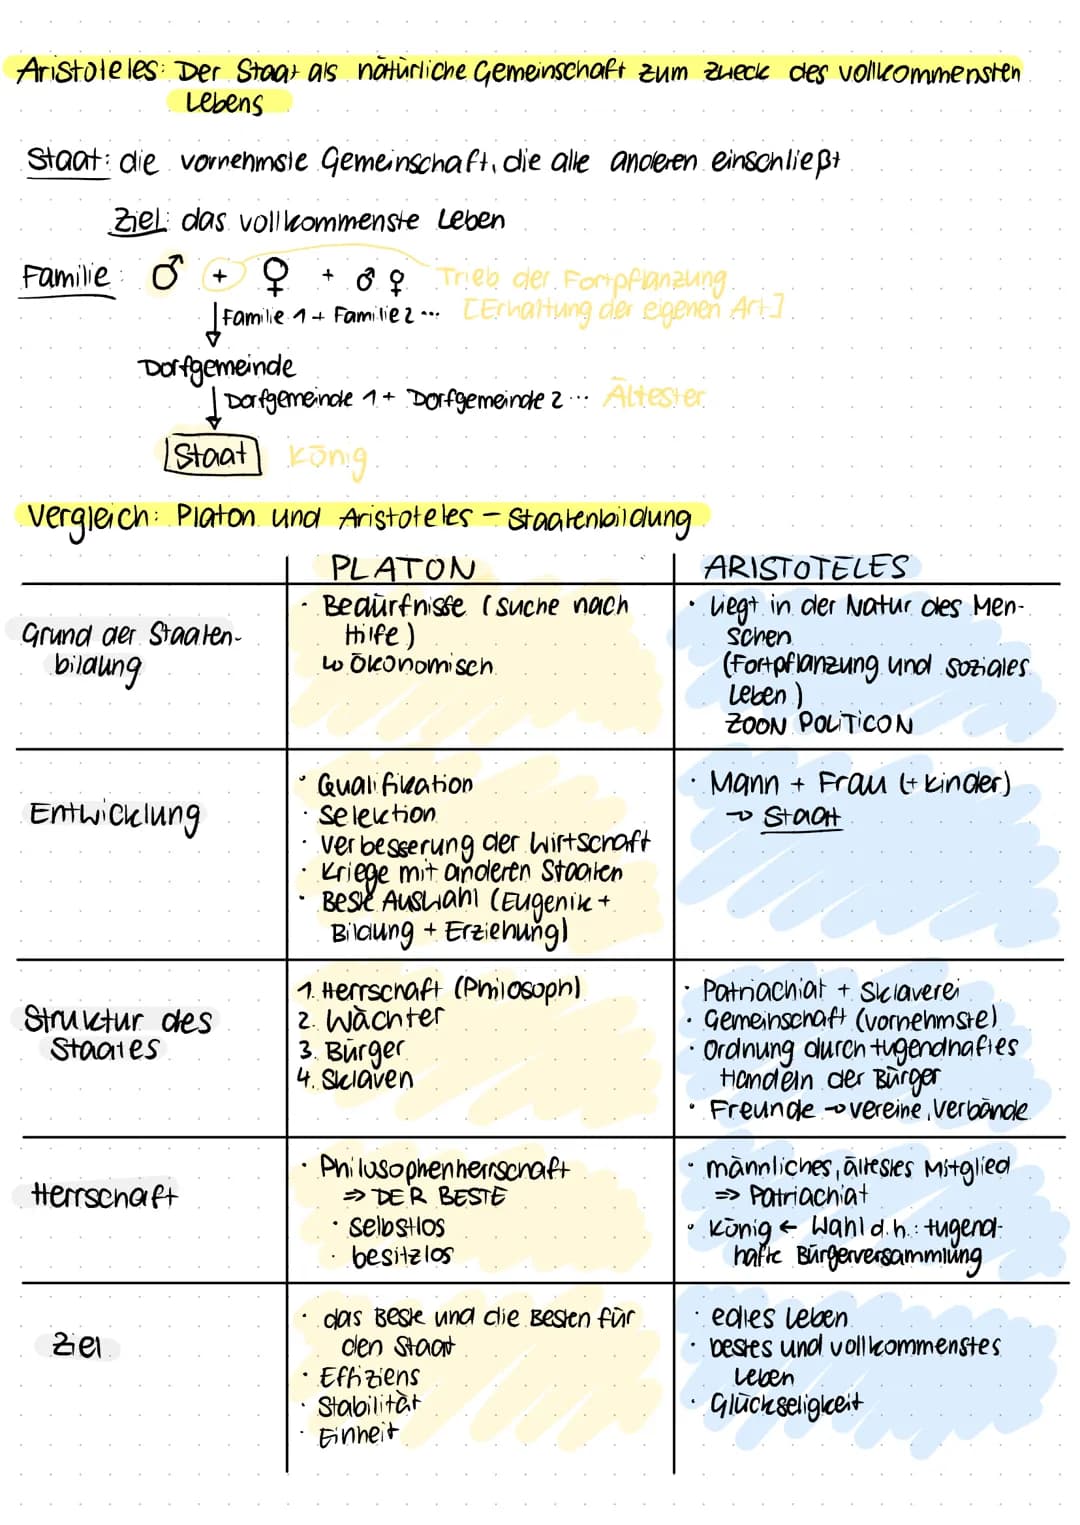 Aristoteles: Der Staat als natürliche Gemeinschaft zum Zweck des vollkommensten
Lebens
Staat: die vornehmste Gemeinschaft, die alle anderen einschließt
Ziel: das vollkommenste Leben
Familie: ♂ + ♀ + ♂ ♀ Trieb der Fortpflanzung
[Erhaltung der eigenen Art]
↓ Familie 1 + Familie 2 ...
Dorfgemeinde
↓ Dorfgemeinde 1 + Dorfgemeinde 2 ... Ältester
Staat König
Vergleich: Platon und Aristoteles - Staatenbildung
PLATON
ARISTOTELES
Grund der Staaten-
bildung
• Bedürfnisse (Suche nach
Hilfe)
↳ ökonomisch
• liegt in der Natur des Men-
schen
(Fortpflanzung und soziales
Leben)
ZOON POLITICON
Entwicklung
• Qualifikation
• Selektion
• Verbesserung der Wirtschaft
• Kriege mit anderen Staaten
• Beste Auswahl (Eugenik +
Bildung + Erziehung)
• Mann + Frau (+ Kinder)
→ Staat
Struktur des
Staates
1. Herrschaft (Philosoph)
2. Wächter
3. Bürger
4. Sklaven
• Patriachiat + Sklaverei
• Gemeinschaft (vornehmste)
• Ordnung durch tugendhaftes
Handeln der Bürger
• Freunde → Vereine, Verbände
Herrschaft
• Philosophenherrschaft
⇒ DER BESTE
• selbstlos
• besitzlos
• männliches, ältestes Mitglied
⇒ Patriachiat
• König ← Wahl d.h.: tugend-
hafte Bürgerversammlung
Ziel
• das Beste und die Besten für
den Staat
• Effiziens
• Stabilität
• Einheit
• edles Leben
• bestes und vollkommenstes
Leben
• Glückseligkeit